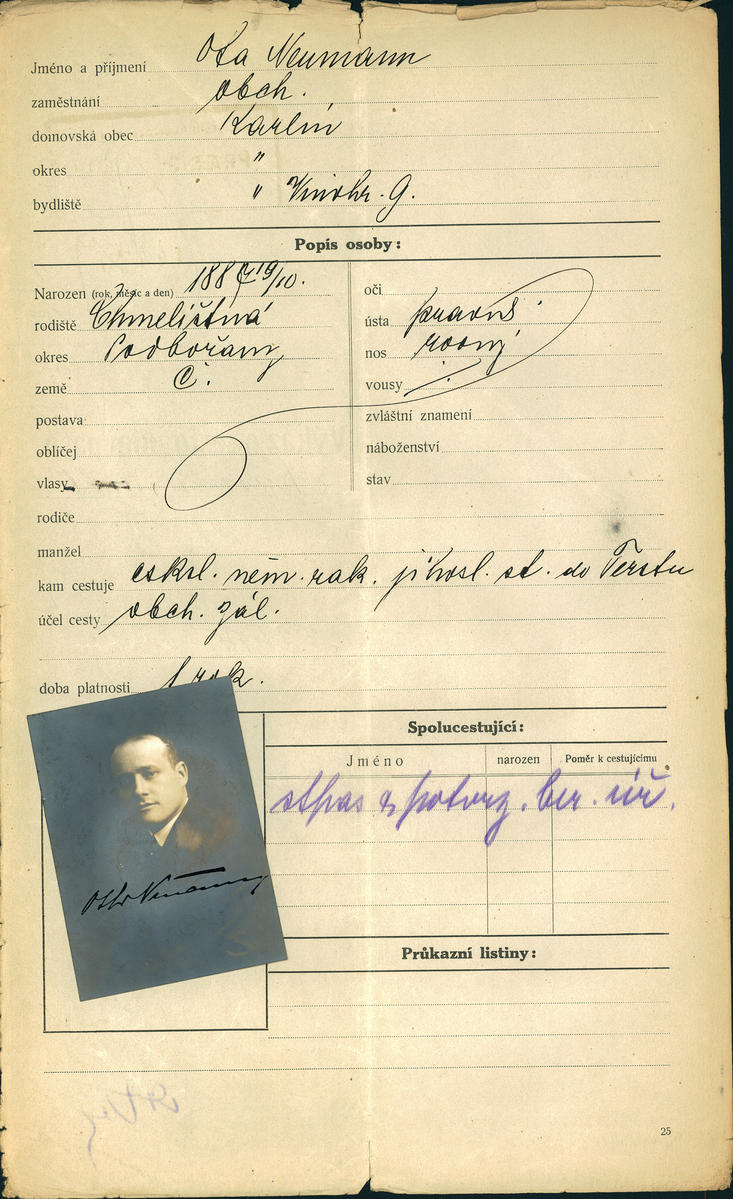 Jméno a příjmení Ota Neumann
zaměstnání obch.
domovská obec Karlín
okres "
bydliště " Vinohr. 9.
Popis osoby:
Narozen (rok, měsíc a den) 1887 19/10.
rodiště Chmelištná
okres Podbořany
země Č.
postava
obličej
vlasy
rodiče
manžel
oči
ústa pravid.
nos rovný
vousy
zvláštní znamení
náboženství
stav
kam cestuje čsksl. něm. rak. jihosl. st. do Terstu
účel cesty obch. zál.
doba platnosti 1 rok.
Spolucestující:
Jméno narozen Poměr k cestujícímu
potvrz. ber. úř.
Otto Neumann
Průkazní listiny:
25